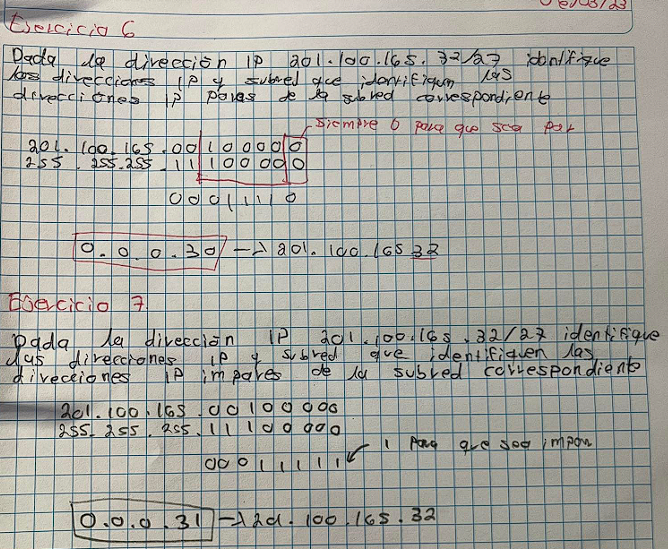 Ejercicio 6
Dada la dirección IP 201.100.165.32/27 identifique
las direcciones IP y subred que identifiquen las
direcciones IP pares de la subred correspondiente
Siempre 0 para que sea par
201.100.165.00100000
255.255.255.11100000
00011110
0.0.0.30 → 201.100.165.32
Ejercicio 7
Dada la dirección IP 201.100.165.32/27 identifique
las direcciones IP y subred que identifiquen las
direcciones IP impares de la subred correspondiente
201.100.165.00100000
255.255.255.11100000
1 para que sea impar
00011111
0.0.0.31 → 201.100.165.32